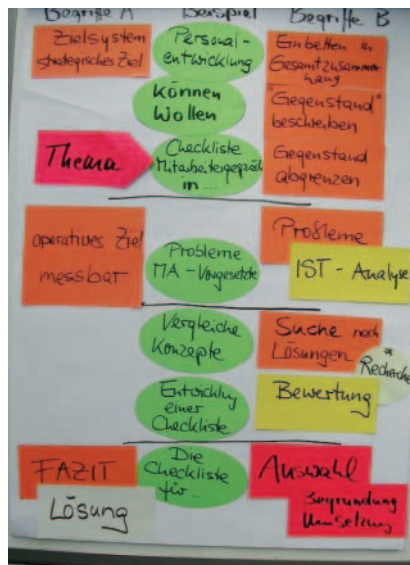 Begriffe A
Beispiel
Begriffe B
Zielsystem
strategisches Ziel
Personal-
entwicklung
Einbetten in
Gesamtzusammen-
hang
Können
Wollen
"Gegenstand"
beschreiben
Thema
Checkliste
Mitarbeitergespräch
in ...
Gegenstand
abgrenzen
operatives Ziel
messbar
Probleme
MA - Vorgesetzte
Probleme
IST - Analyse
Vergleiche
Konzepte
Suche nach
Lösungen
*
Recherche
Entwicklung
einer
Checkliste
Bewertung
FAZIT
Lösung
Die
Checkliste
für ..
Auswahl
Begründung
Umsetzung